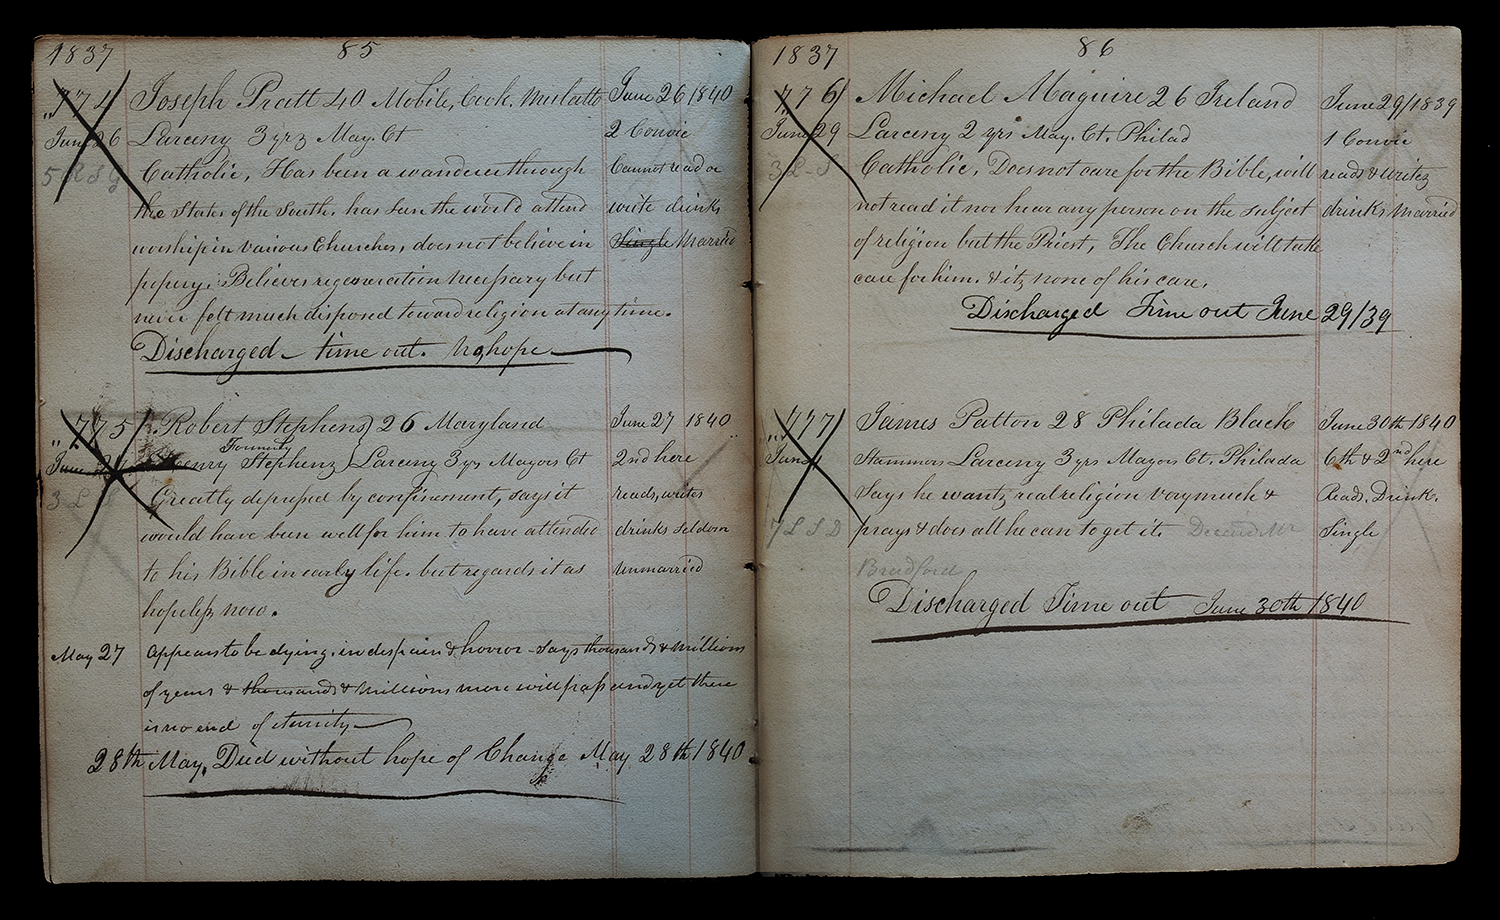 1837 85
774 Joseph Pratt 40 Mobile, Cook. Mulatto June 26 1840
June 26 Larceny 3 yrs May. Ct 2 Convic
5 R S G Catholic, Has been a wanderer through Cannot read or
the States of the South. has seen the world attend write drinks
worship in various Churches, does not believe in Single Married
popery; Believes regeneration necessary but
never felt much disposed toward religion at any time.
Discharged – time out. No hope
" 775 Robert Stephens } 26 Maryland June 27 1840
Formerly
June Henry Stephens } Larceny 3 yrs Mayors Ct 2nd here
3 L S Greatly depressed by confinement, says it reads, writes
would have been well for him to have attended drinks seldom
to his Bible in early life. but regards it as unmarried
hopeless now.
May 27 appears to be dying. in despair & horror – says thousands & millions
of years & thousands & millions more will pass and yet there
is no end of eternity
28th May. Died without hope of Change May 28th 1840
1837 86
776 Michael Maguire 26 Ireland June 29/1839
June 29 Larceny 2 yrs May. Ct. Philad 1 Convic
3 L - S Catholic, Does not care for the Bible, will reads & writes
not read it nor hear any person on the subject drinks Married
of religion but the Priest, The Church will take
care for him. & its none of his care.
Discharged Time out June 29/39
" 777 James Patton 28 Philada Black June 30th 1840
June Stammers Larceny 3 yrs Mayors Ct. Philada 6th & 2nd here
Says he wants real religion very much & Read. Drink.
7 L S D prays & does all he can to get it. Deceived Mr Single
Bradford
Discharged Time out June 30th 1840